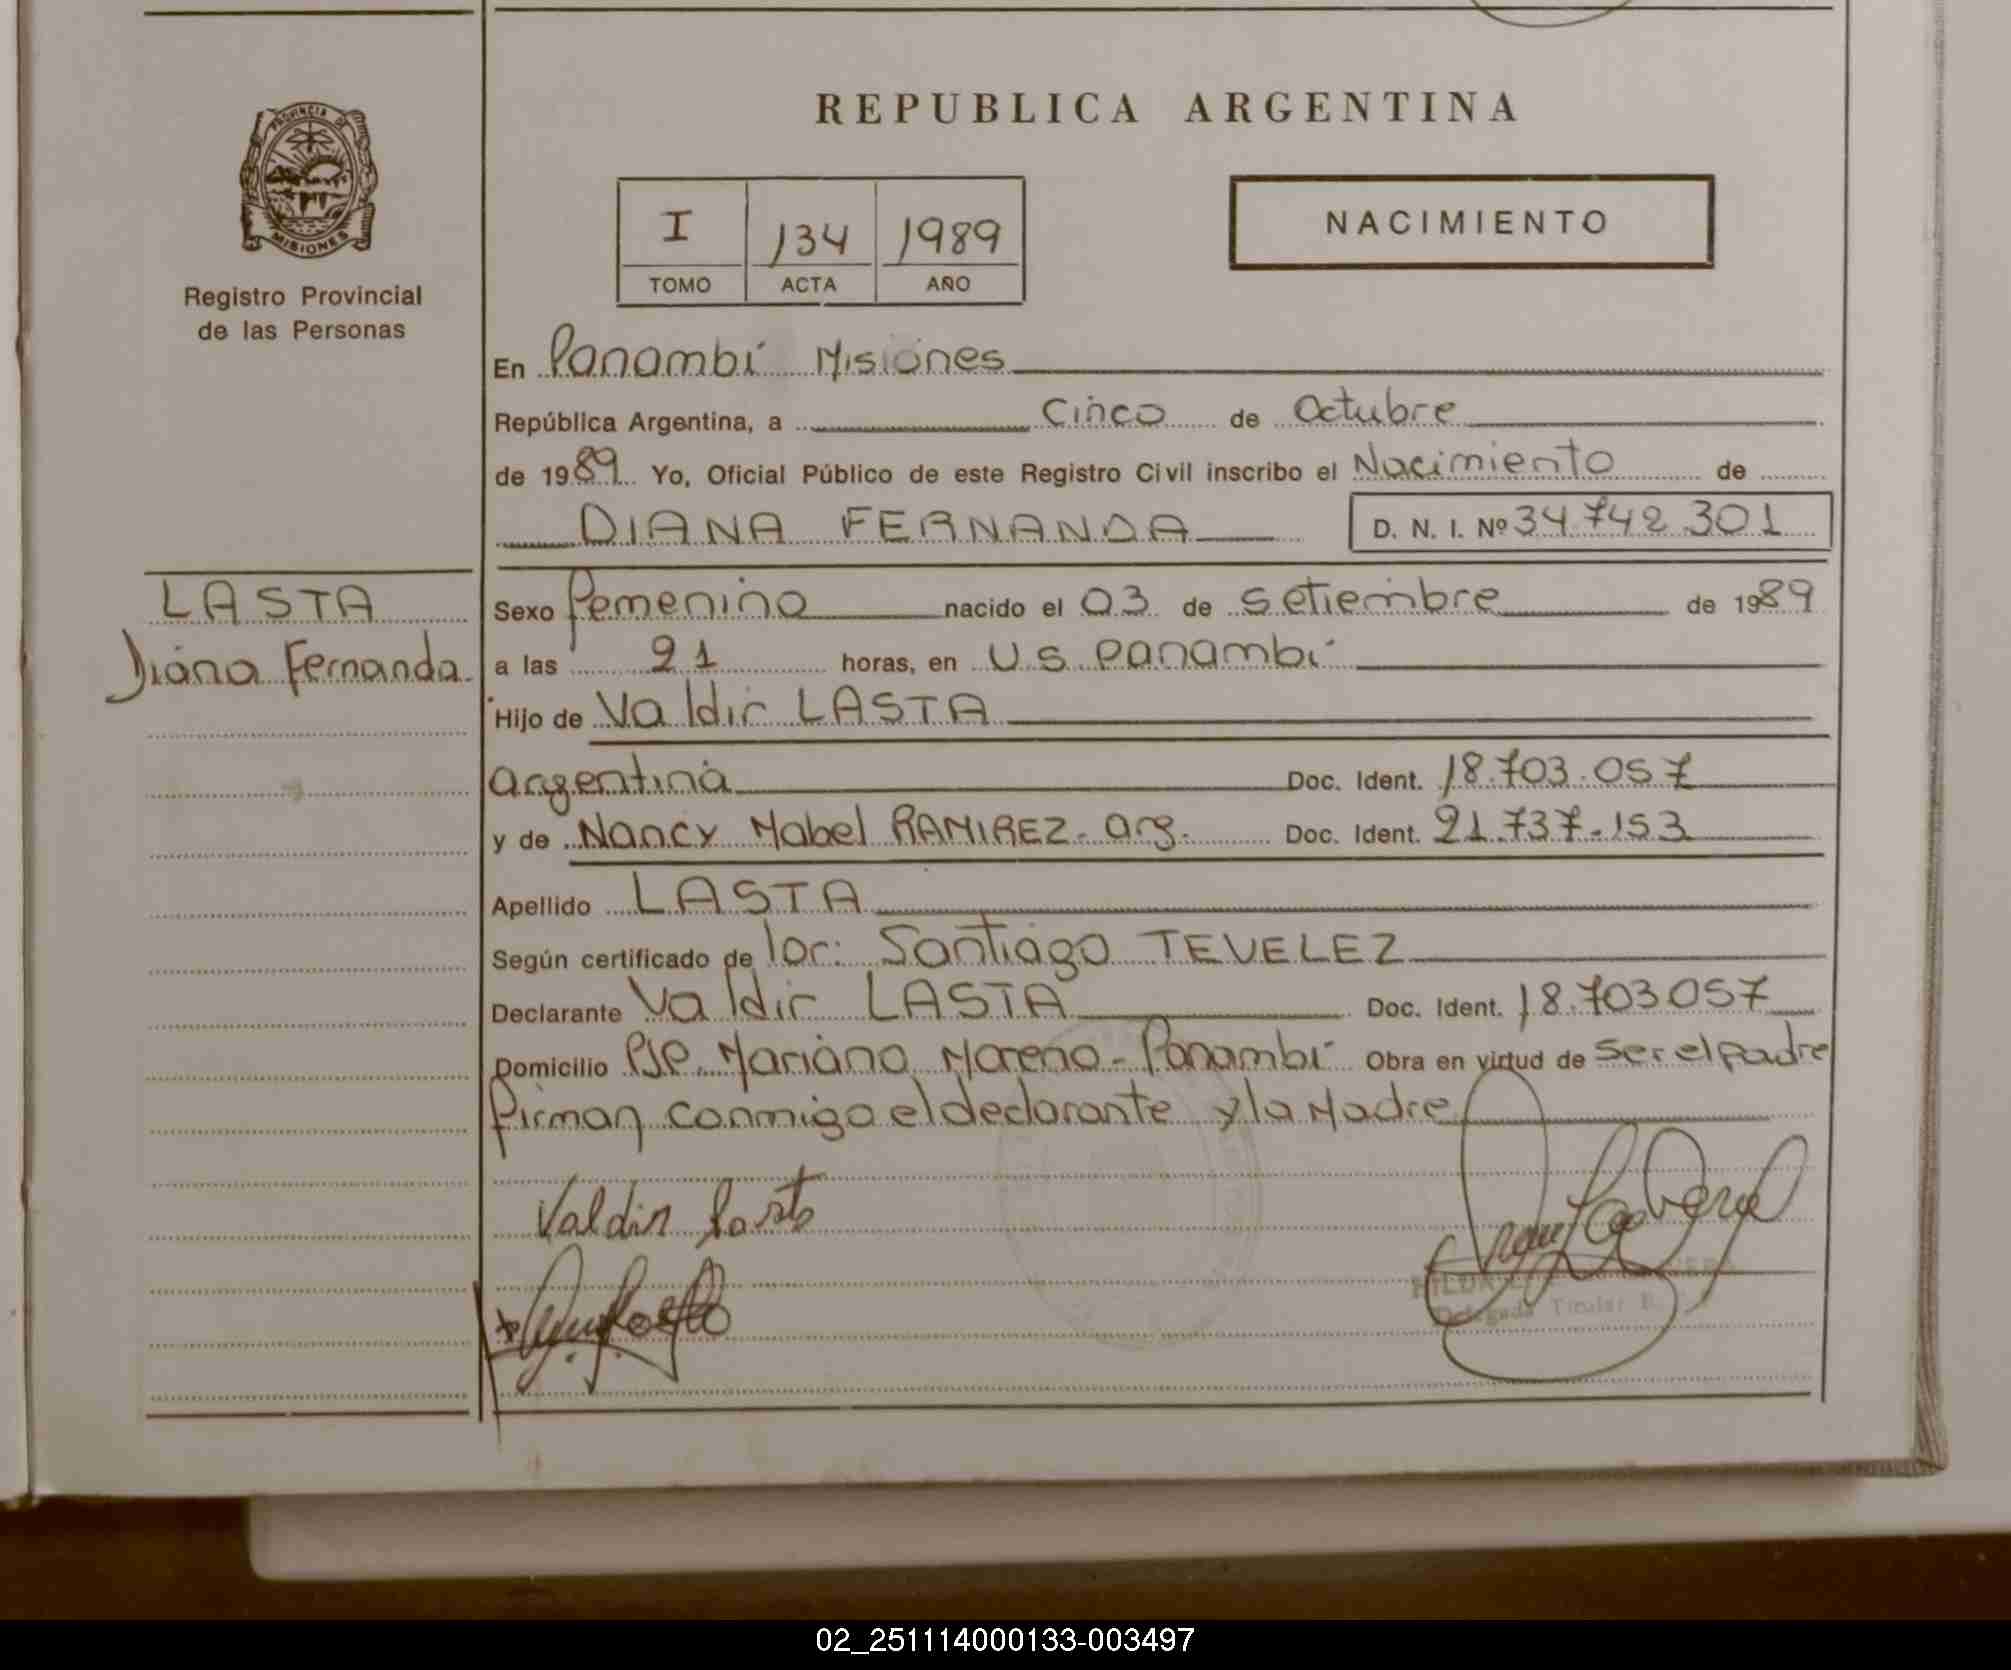 PROVINCIA DE
MISIONES
Registro Provincial
de las Personas
REPUBLICA ARGENTINA
I 134 1989
TOMO ACTA AÑO
NACIMIENTO
En Panambí Misiones
República Argentina, a cinco de Octubre
de 1989 Yo, Oficial Público de este Registro Civil inscribo el Nacimiento de
DIANA FERNANDA D. N. I. Nº 34.742.301
LASTA
Diana Fernanda
Sexo femenino nacido el 03 de setiembre de 1989
a las 21 horas, en U S Panambí
Hijo de Valdir LASTA
argentina Doc. Ident. 18.703.057
y de Nancy Mabel RAMIREZ - arg. Doc. Ident. 21.737.153
Apellido LASTA
Según certificado de Santiago TEVELEZ
Declarante Valdir LASTA Doc. Ident. 18.703057
Domicilio Pje. Mariano Moreno - Panambí Obra en virtud de ser el padre
firman conmigo el declarante y la Madre
Valdir Lasta
Delegada Titular
02_251114000133-003497